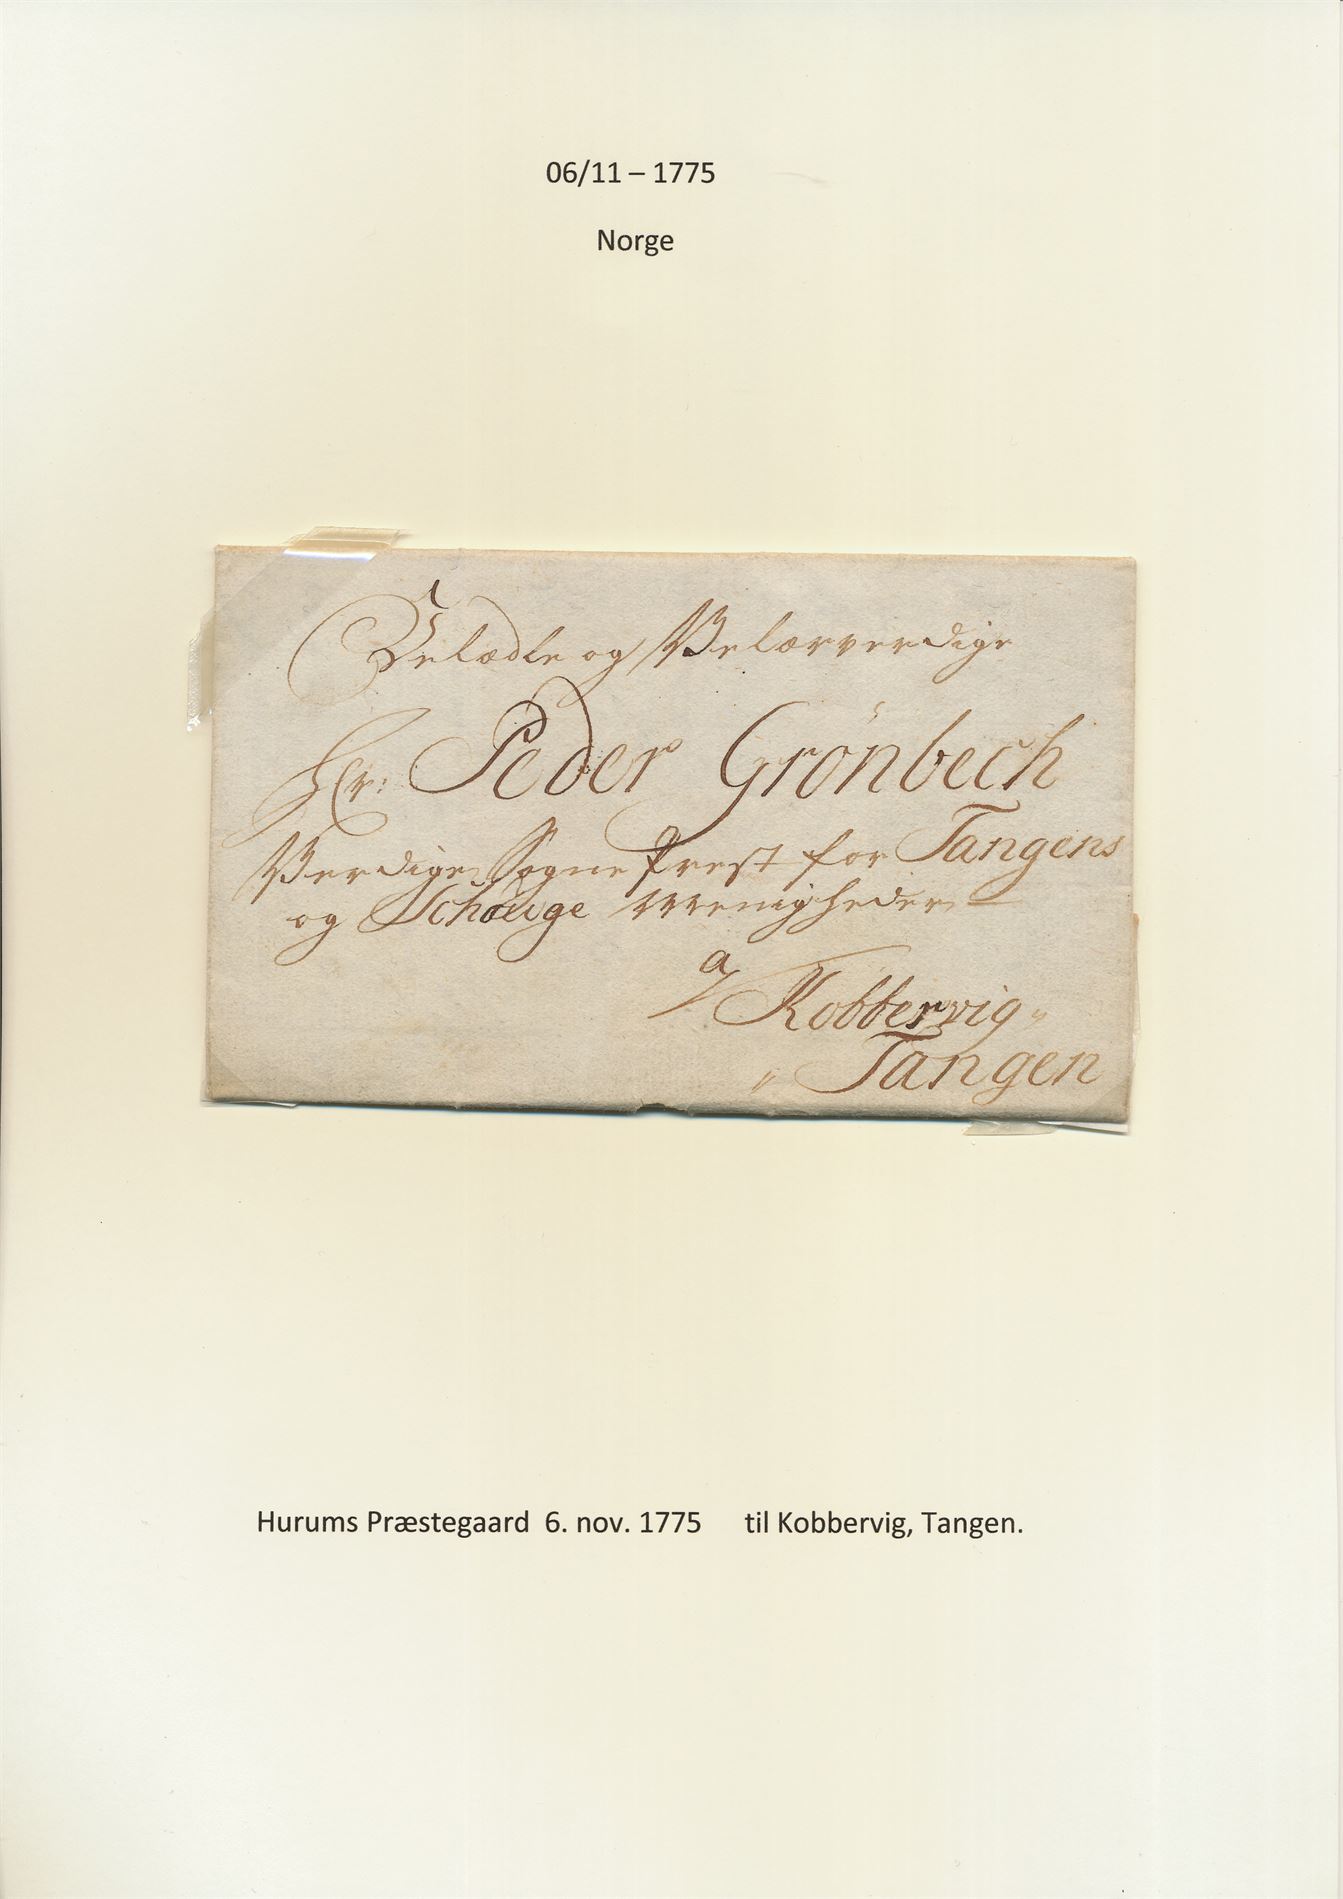 06/11 – 1775
Norge
Velædle og Velærverdige
Hr: Peder Grönbech
Verdigen Sogne Prest for Tangens
og Schouge Menigheder
a/ Kobbervig„
„ Tangen
Hurums Præstegaard 6. nov. 1775 til Kobbervig, Tangen.